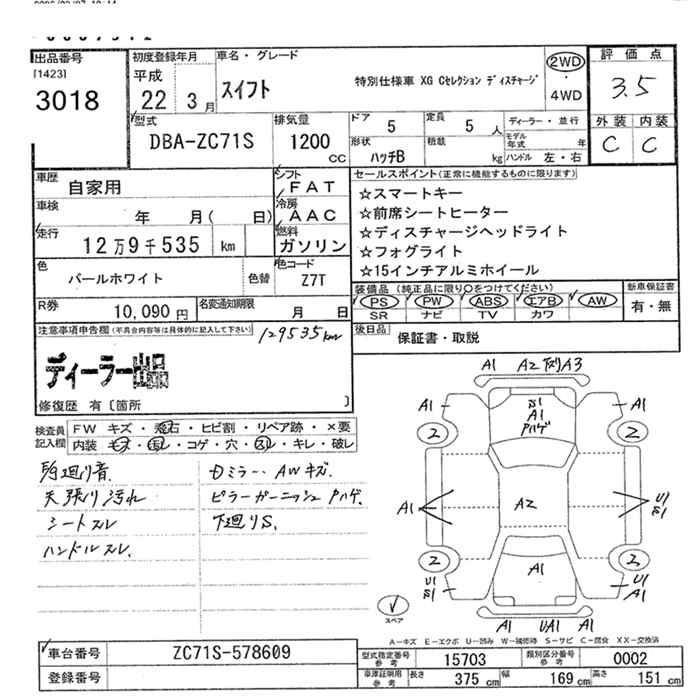 出品番号
[1423]
3018
初度登録年月
平成
22 3月
車名・グレード
スイフト
特別仕様車 XG Cセレクション ディスチャージ
2WD
・
4WD
評価点
3.5
外装 内装
C C
型式
DBA-ZC71S
排気量
1200
cc
ドア
5
定員
5 人
形状
ハッチB
積載
kg
ディーラー・並行
モデル年式 年
ハンドル 左・右
車歴
自家用
シフト
FAT
車検
年 月( 日)
冷房
AAC
走行
12万9千535 km
燃料
ガソリン
色
パールホワイト
色替
色コード
Z7T
R券
10,090円
名変通知期限
月 日
セールスポイント(正常に機能するものに限ります)
☆スマートキー
☆前席シートヒーター
☆ディスチャージヘッドライト
☆フォグライト
☆15インチアルミホイール
装備品(純正品に限り○をつけてください)
PS PW ABS エアB AW
SR ナビ TV カワ
新車保証書
有・無
後日品
保証書・取説
注意事項申告欄(不具合内容等は具体的に記入して下さい)
129535km
ディーラー出品
修復歴 有〔箇所 〕
検査員記入欄
FW キズ・飛石・ヒビ割・リペア跡・×要
内装 キズ・汚レ・コゲ・穴・スレ・キレ・破レ
天張り汚れ
シートスレ
ハンドルスレ、
Dミラー、AWキズ
ピラーガーニッシュ Pハゲ、
下廻りS、
A1 A2 下スリA3
A1 A1
S1
A1
Pハゲ
2 2
A1 A2 U1
S1
2 2
U1
S1
A1
U1
A1
A1 UA1 A1
スペア
A－キズ E－エクボ U－凹み W－補修跡 S－サビ C－腐食 XX－交換済
車台番号
ZC71S-578609
登録番号
型式指定番号
参考
15703
類別区分番号
参考
0002
車庫証明用
参考
長さ 375 cm 幅 169 cm 高さ 151 cm